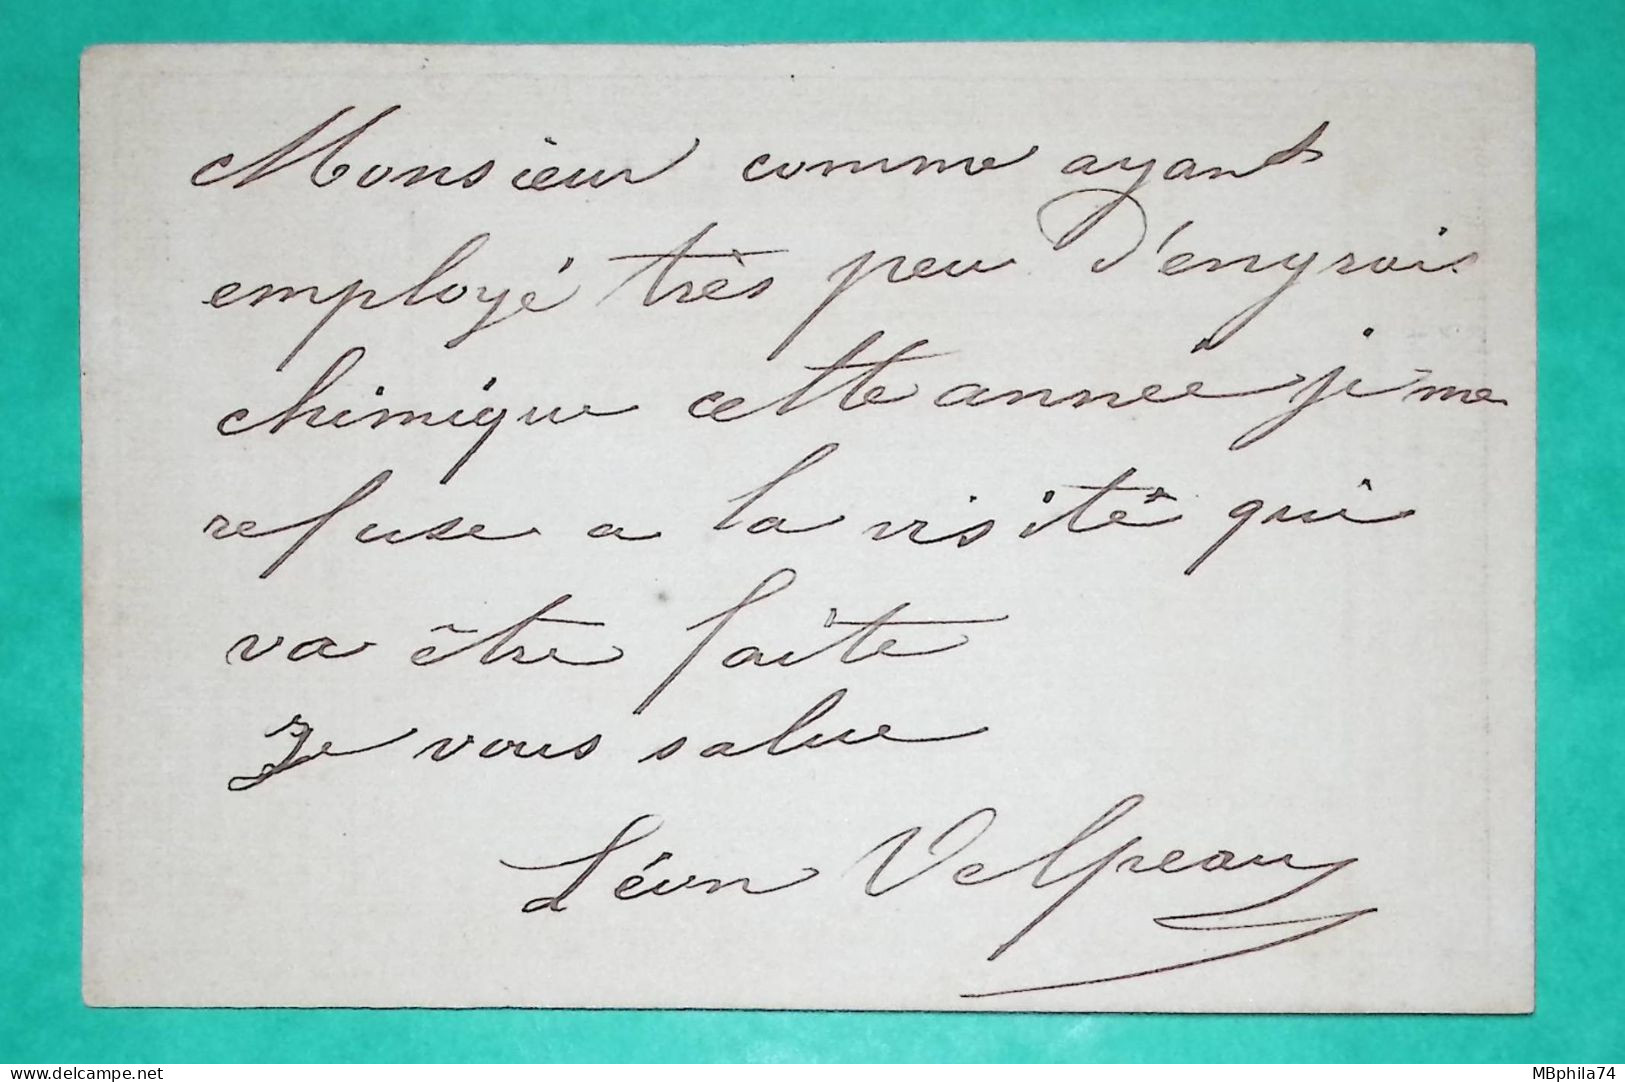 Monsieur comme ayant
employé très peu d'engrais
chimique cette année je me
refuse a la visité qui
va être faite
Je vous salue
Léon Velpeau
www.delcampe.net
MBphila74